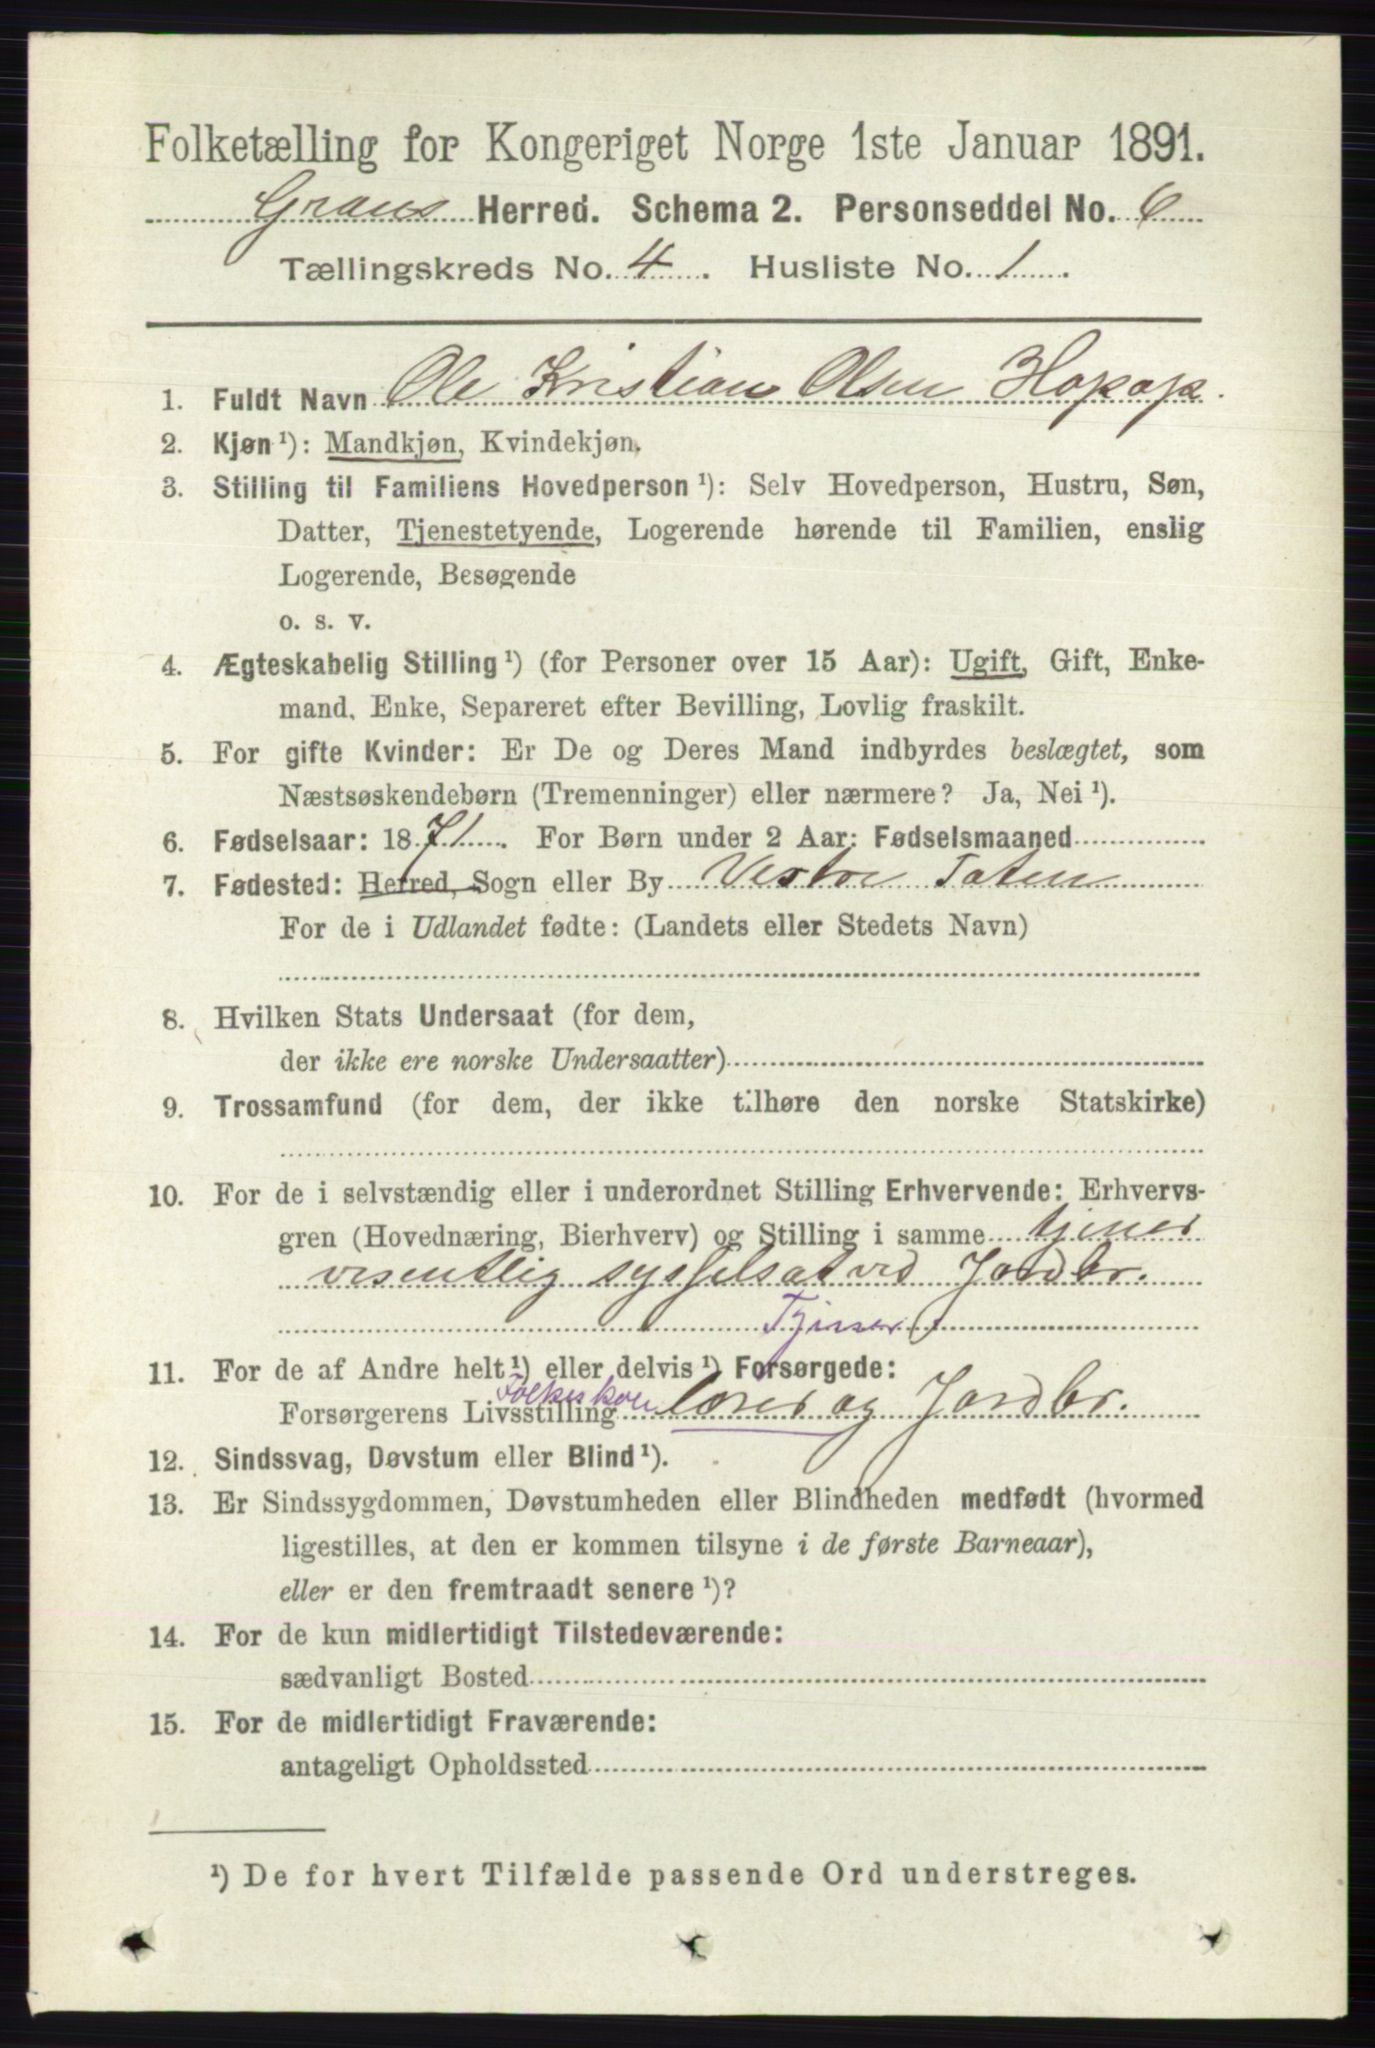 Folketælling for Kongeriget Norge 1ste Januar 1891.
Grans Herred. Schema 2. Personseddel No. 6
Tællingskreds No. 4. Husliste No. 1.
1. Fuldt Navn Ole Kristian Olsen Hopop.
2. Kjøn ¹): Mandkjøn, Kvindekjøn.
3. Stilling til Familiens Hovedperson ¹): Selv Hovedperson, Hustru, Søn,
Datter, Tjenestetyende, Logerende hørende til Familien, enslig
Logerende, Besøgende
o. s. v.
4. Ægteskabelig Stilling ¹) (for Personer over 15 Aar): Ugift, Gift, Enke-
mand, Enke, Separeret efter Bevilling, Lovlig fraskilt.
5. For gifte Kvinder: Er De og Deres Mand indbyrdes beslægtet, som
Næstsøskendebørn (Tremenninger) eller nærmere? Ja, Nei ¹).
6. Fødselsaar: 1871. For Børn under 2 Aar: Fødselsmaaned
7. Fødested: Herred, Sogn eller By Vestre Toten
For de i Udlandet fødte: (Landets eller Stedets Navn)
8. Hvilken Stats Undersaat (for dem,
der ikke ere norske Undersaatter)
9. Trossamfund (for dem, der ikke tilhøre den norske Statskirke)
10. For de i selvstændig eller i underordnet Stilling Erhvervende: Erhvervs-
gren (Hovednæring, Bierhverv) og Stilling i samme tjener
vesentlig sysselsat ved Jordbr.
Tjener
11. For de af Andre helt ¹) eller delvis ¹) Forsørgede:
Folkeskole
Forsørgerens Livsstilling lærer og Jordbr.
12. Sindssvag, Døvstum eller Blind ¹).
13. Er Sindssygdommen, Døvstumheden eller Blindheden medfødt (hvormed
ligestilles, at den er kommen tilsyne i de første Barneaar),
eller er den fremtraadt senere ¹)?
14. For de kun midlertidigt Tilstedeværende:
sædvanligt Bosted
15. For de midlertidigt Fraværende:
antageligt Opholdssted
¹) De for hvert Tilfælde passende Ord understreges.